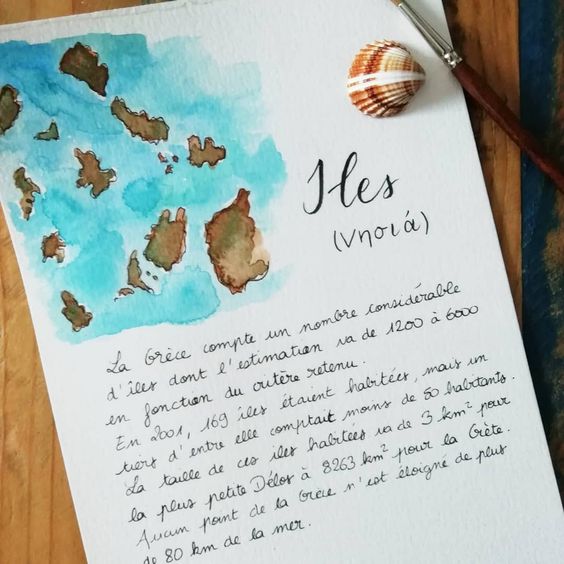 Iles
(νησιά)
La Grèce compte un nombre considérable
d'îles dont l'estimation va de 1200 à 6000
en fonction du critère retenu.
En 2001, 169 îles étaient habitées, mais un
tiers d'entre elle comptait moins de 50 habitants.
La taille de ces iles habitées va de 3 km² pour
la plus petite Délos à 8263 km² pour la Crète.
Aucun point de la Grèce n'est éloigné de plus
de 80 km de la mer.